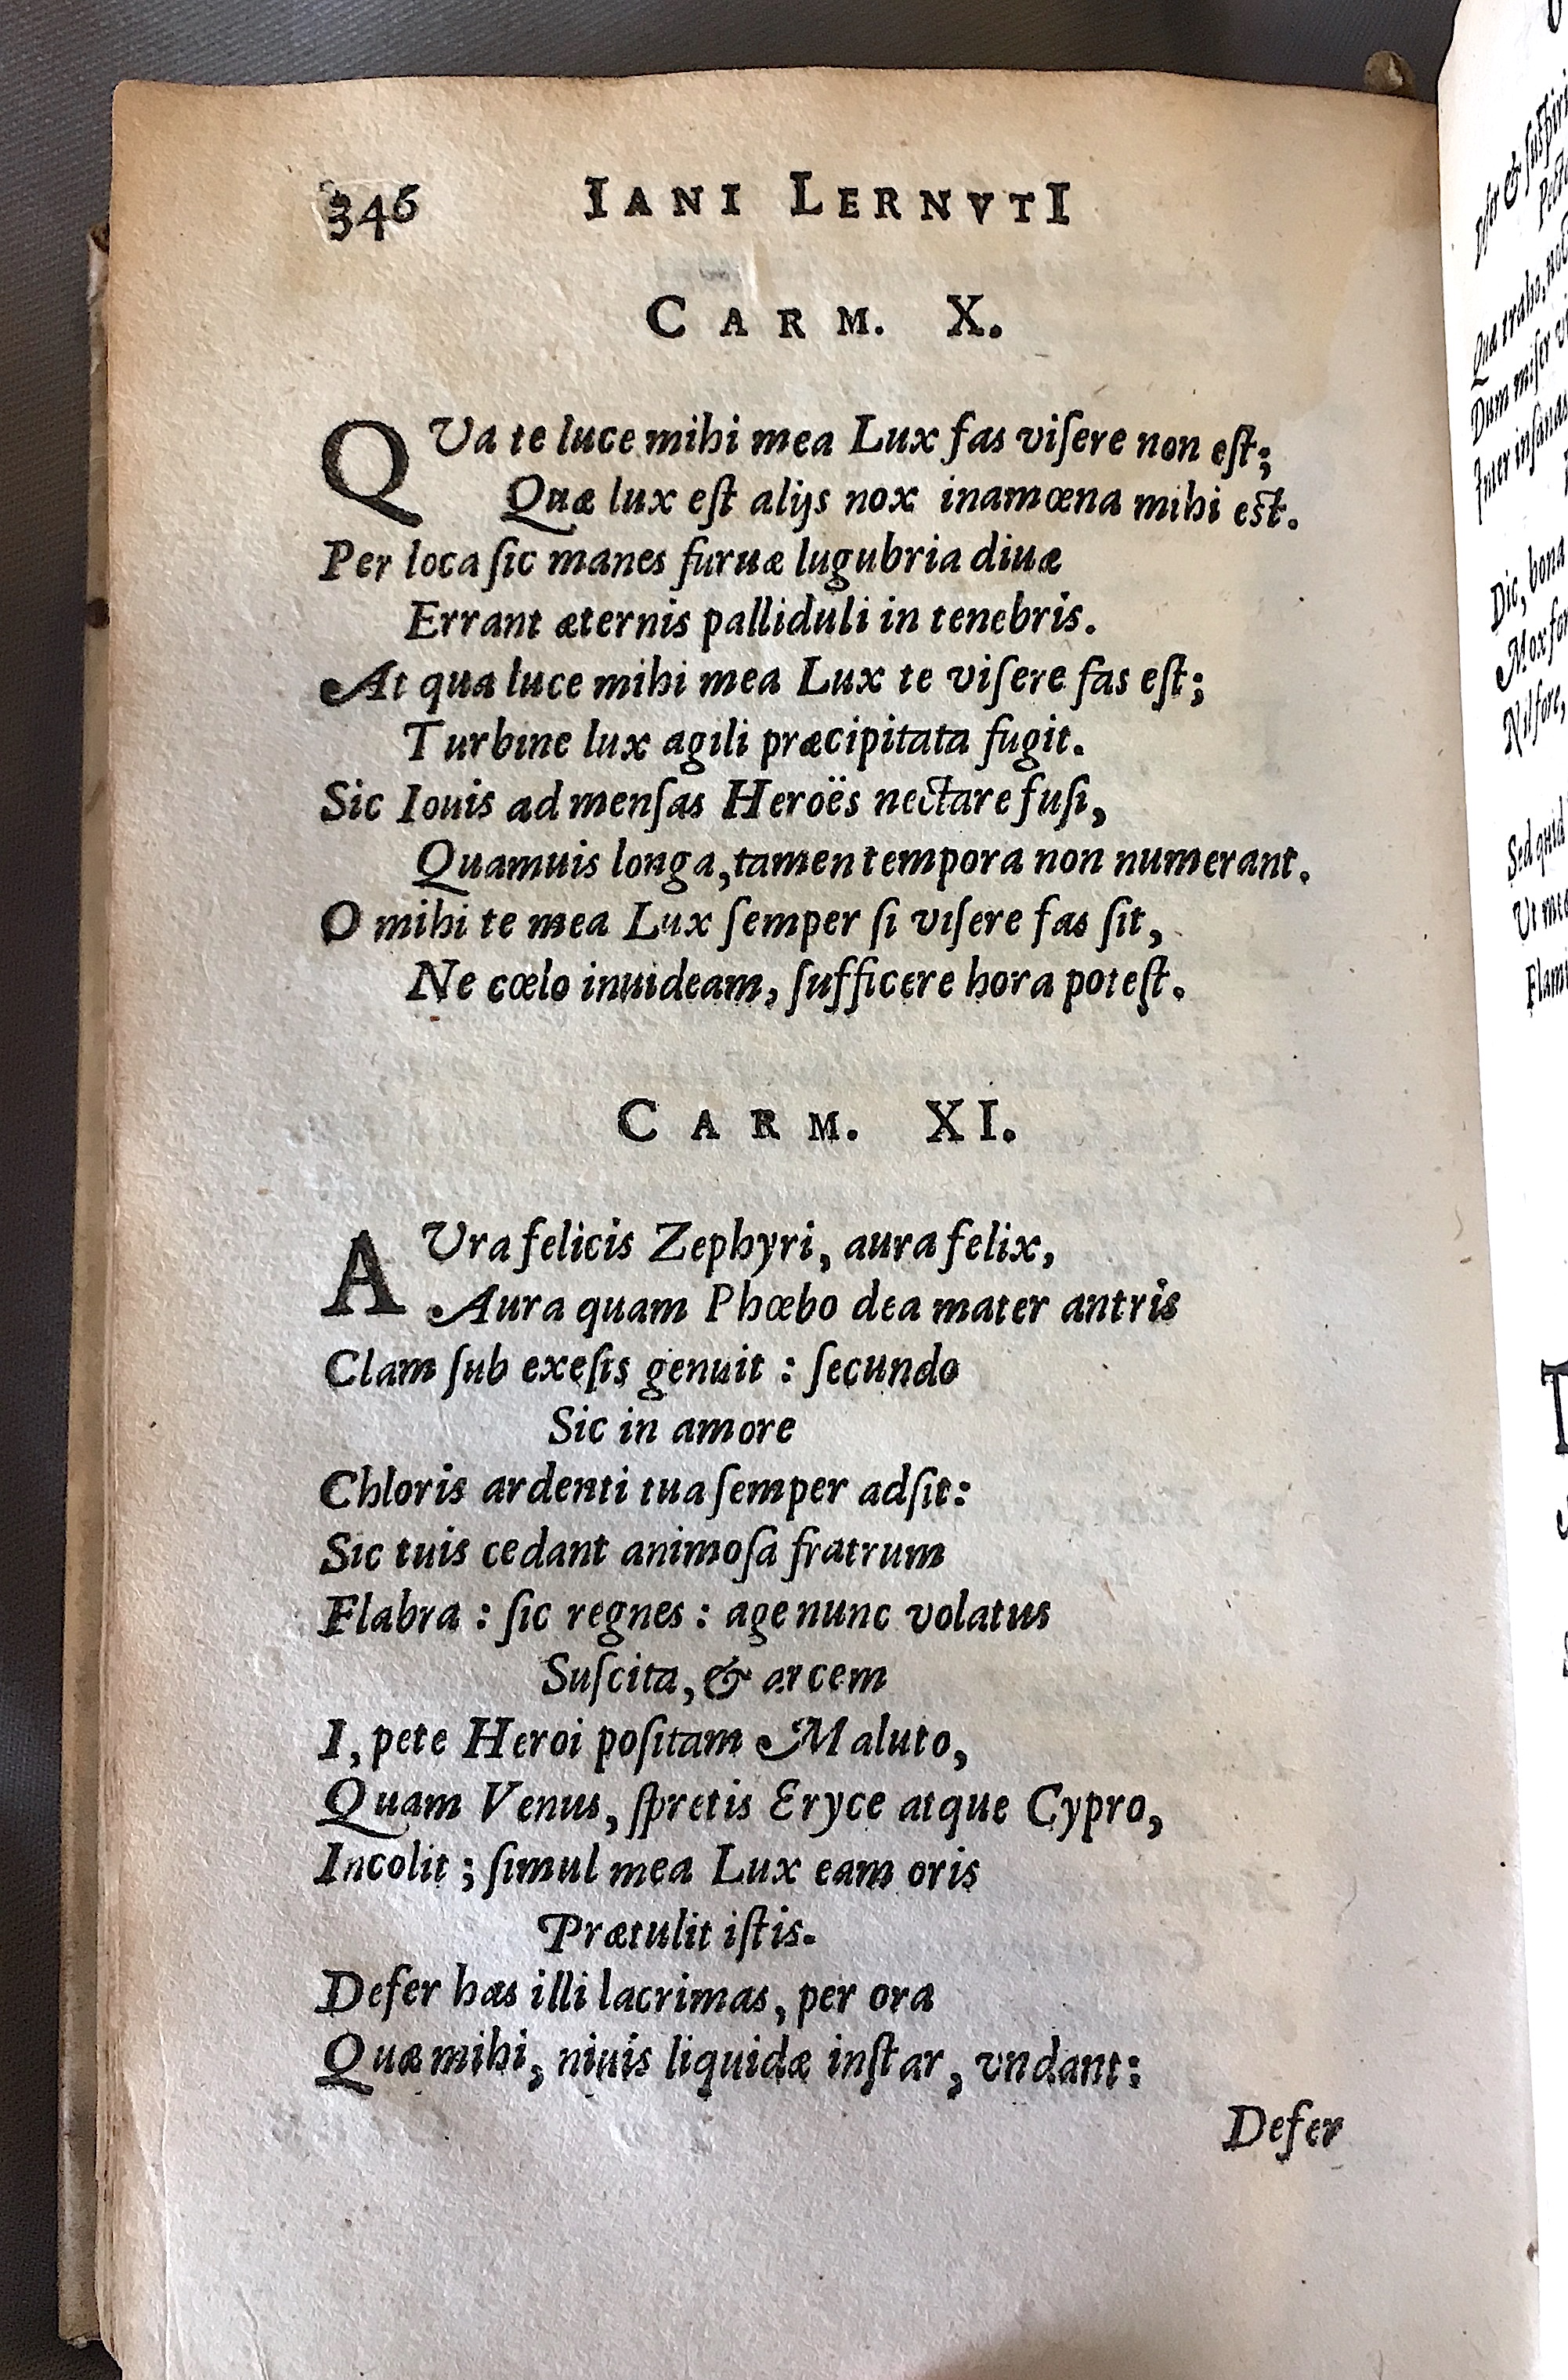 346 IANI LERNVTI
CARM. X.
QVa te luce mihi mea Lux fas viſere non eſt;
Quæ lux eſt alijs nox inamœna mihi eſt.
Per loca ſic manes furuæ lugubria diuæ
Errant æternis palliduli in tenebris.
At qua luce mihi mea Lux te viſere fas eſt;
Turbine lux agili præcipitata fugit.
Sic Iouis ad menſas Heroës nectare fuſi,
Quamuis longa, tamen tempora non numerant.
O mihi te mea Lux ſemper ſi viſere fas ſit,
Ne cœlo inuideam, ſufficere hora poteſt.
CARM. XI.
AVra felicis Zephyri, aura felix,
Aura quam Phœbo dea mater antris
Clam ſub exeſis genuit : ſecundo
Sic in amore
Chloris ardenti tua ſemper adſit:
Sic tuis cedant animoſa fratrum
Flabra : ſic regnes : age nunc volatus
Suſcita, & arcem
I, pete Heroi poſitam Maluto,
Quam Venus, ſpretis Eryce atque Cypro,
Incolit ; ſimul mea Lux eam oris
Prætulit iſtis.
Defer has illi lacrimas, per ora
Quæ mihi, niuis liquidæ inſtar, vndant:
Defer
Quæ traho,
Dum miſer
Inter inſanas
Dic, bona
Mox
Nil fore,
Sed quid
Vt